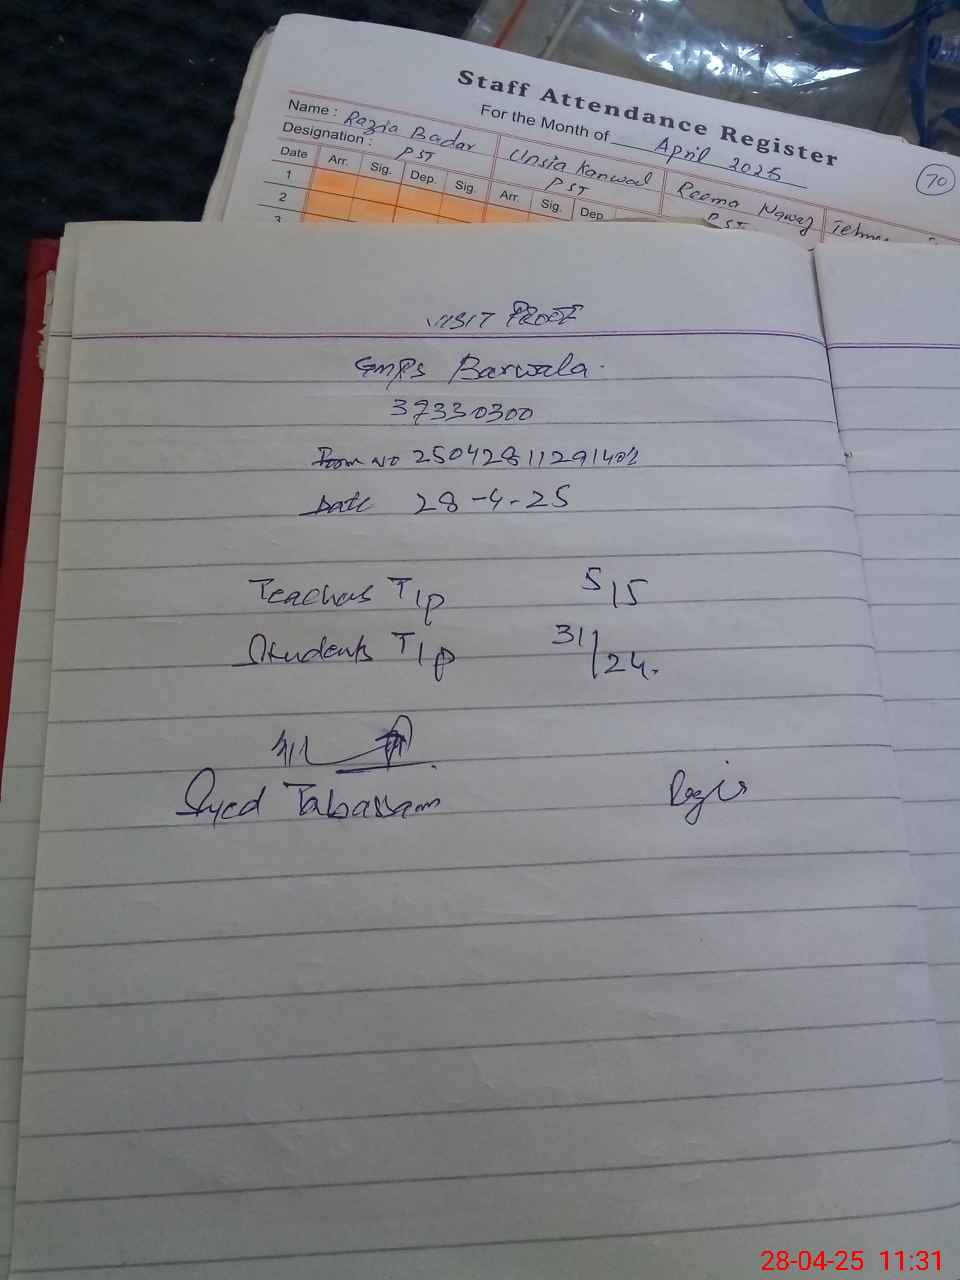 Staff Attendance Register
For the Month of April 2025
70
Name : Razia Badar Unsia Kanwal Reema Nawaz
Designation : PST PST PST
Date Arr. Sig. Dep. Sig. Arr. Sig. Dep
1
2
3
VISIT PROOF
GMPS Barwala.
37330300
Form NO
Date 28-4-25
Teachers T/P 5/5
Students T/P 31/24.
Syed Tabassam
28-04-25 11:31